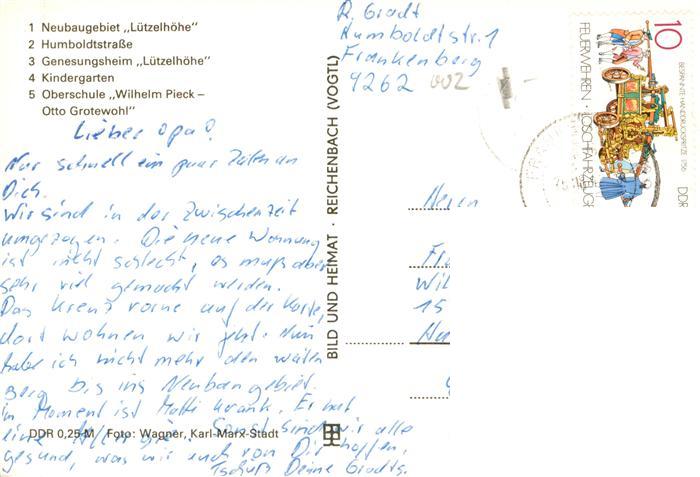 1 Neubaugebiet „Lützelhöhe“
2 Humboldtstraße
3 Genesungsheim „Lützelhöhe“
4 Kindergarten
5 Oberschule „Wilhelm Pieck –
Otto Grotewohl“
Lieber Opa!
Nur schnell ein paar Zeilen an
Dich.
Wir sind in der Zwischenzeit
umgezogen. Die neue Wohnung
ist nicht schlecht, es muß aber
sehr viel gemacht werden.
Das Kreuz vorne auf der Karte,
dort wohnen wir jetzt. Nun
habe ich nicht mehr den weiten
Berg bis ins Neubaugebiet.
Im Moment ist Matti krank. Er hat
eine Sonst sind wir alle
gesund, was wir auch von Dir hoffen,
Tschüß Deine Gradts.
DDR 0,25 M Foto: Wagner, Karl-Marx-Stadt
BILD UND HEIMAT · REICHENBACH (VOGTL)
R. Gradt
Humboldtstr. 1
Frankenberg
9262
002
Herrn
Wil
15
10
FEUERWEHREN · LÖSCHFAHRZEUGE
BESPANNTE HANDDRUCKSPRITZE 1756
DDR